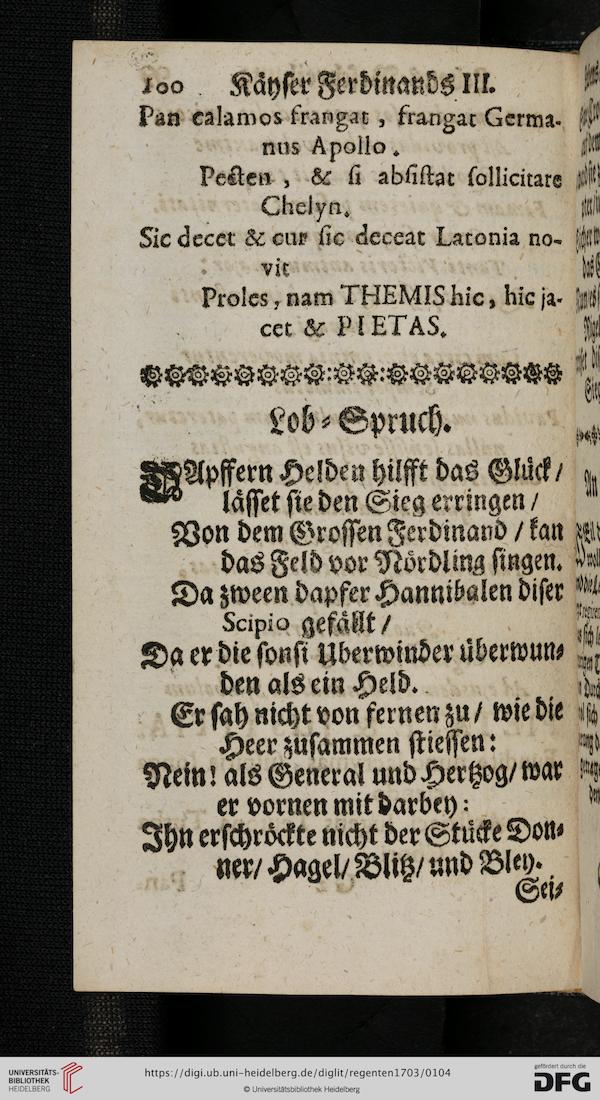 100 Käyser Ferdinands III.
Pan calamos frangat, frangat Germa-
nus Apollo.
Pecten, & si absistat sollicitare
Chelyn.
Sic decet & cur sic deceat Latonia no-
vit
Proles, nam THEMIS hic, hic ja-
cet & PIETAS.
Lob-Spruch.
DApffern Helden hilfft das Glück /
lässet sie den Sieg erringen /
Von dem Grossen Ferdinand / kan
das Feld vor Nördling singen.
Da zween dapfer Hannibalen diser
Scipio gefällt /
Da er die sonst Uberwinder überwun-
den als ein Held.
Er sah nicht von fernen zu / wie die
Heer zusammen stiessen:
Nein! als General und Hertzog/ war
er vornen mit darbey:
Ihn erschröckte nicht der Stücke Don-
ner/ Hagel/ Blitz/ und Bley.
Sei-
UNIVERSITÄTS-
BIBLIOTHEK
HEIDELBERG
https://digi.ub.uni-heidelberg.de/diglit/regenten1703/0104
© Universitätsbibliothek Heidelberg
gefördert durch die
DFG